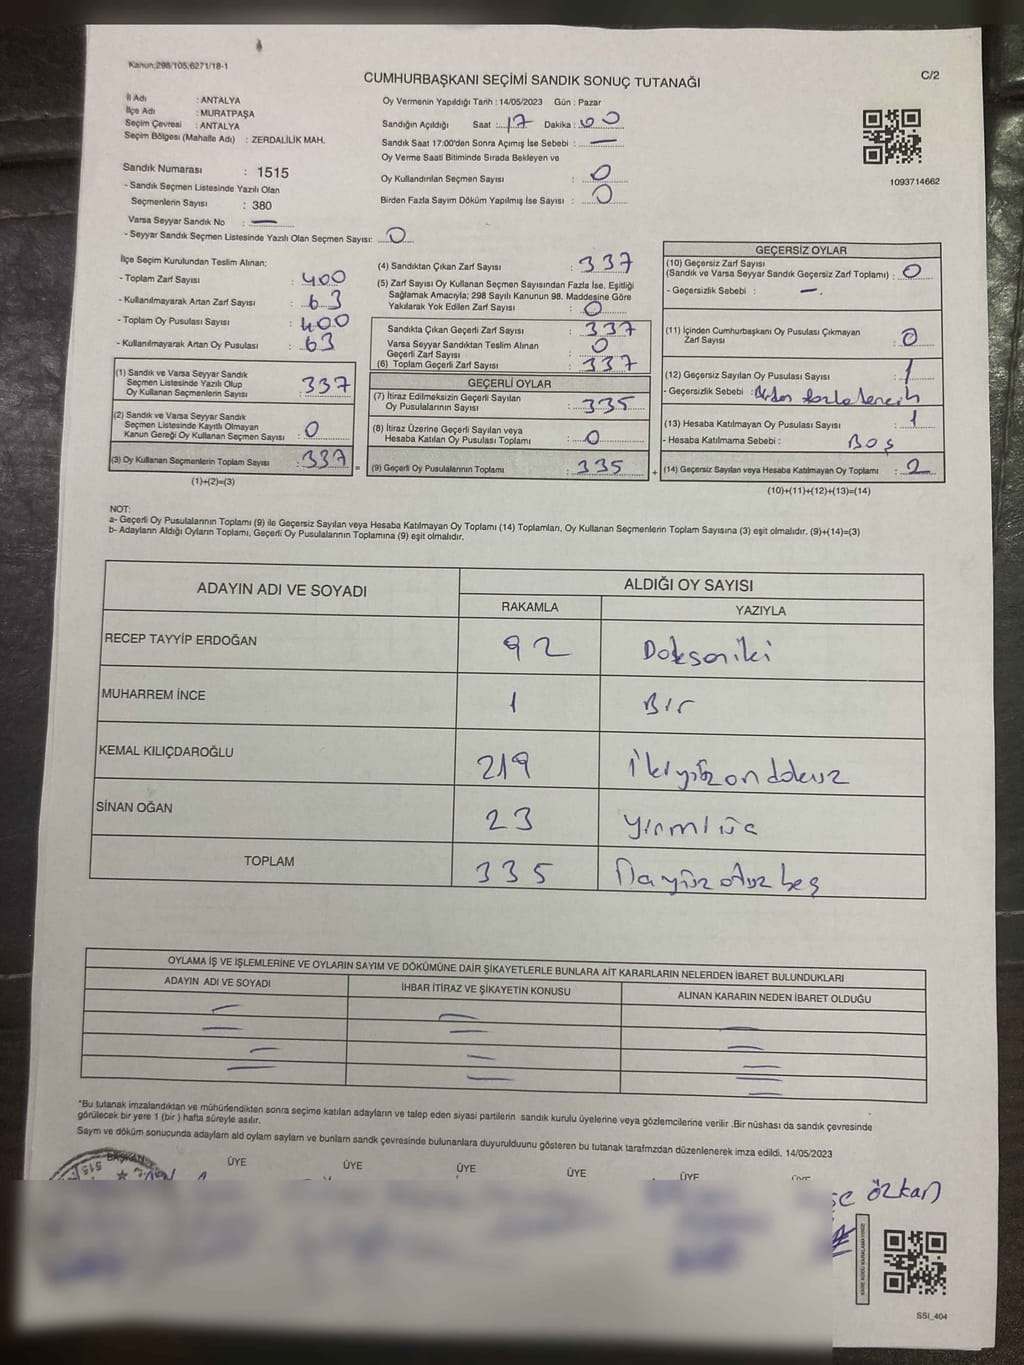 Kanun;298/105;6271/18-1
CUMHURBAŞKANI SEÇİMİ SANDIK SONUÇ TUTANAĞI
C/2
İl Adı : ANTALYA
İlçe Adı : MURATPAŞA
Seçim Çevresi : ANTALYA
Seçim Bölgesi (Mahalle Adı) : ZERDALİLİK MAH.
Oy Vermenin Yapıldığı Tarih : 14/05/2023 Gün : Pazar
Sandığın Açıldığı Saat : 17 Dakika : 00
Sandık Saat 17:00'den Sonra Açımış İse Sebebi : —
Oy Verme Saati Bitiminde Sırada Bekleyen ve
Oy Kullandırılan Seçmen Sayısı : 0
Birden Fazla Sayım Döküm Yapılmış İse Sayısı : 0
1093714662
Sandık Numarası : 1515
- Sandık Seçmen Listesinde Yazılı Olan
Seçmenlerin Sayısı : 380
Varsa Seyyar Sandık No : —
- Seyyar Sandık Seçmen Listesinde Yazılı Olan Seçmen Sayısı: 0
İlçe Seçim Kurulundan Teslim Alınan;
- Toplam Zarf Sayısı : 400
- Kullanılmayarak Artan Zarf Sayısı : 63
- Toplam Oy Pusulası Sayısı : 400
- Kullanılmayarak Artan Oy Pusulası : 63
(1) Sandık ve Varsa Seyyar Sandık
Seçmen Listesinde Yazılı Olup
Oy Kullanan Seçmenlerin Sayısı : 337
(2) Sandık ve Varsa Seyyar Sandık
Seçmen Listesinde Kayıtlı Olmayan
Kanun Gereği Oy Kullanan Seçmen Sayısı : 0
(3) Oy Kullanan Seçmenlerin Toplam Sayısı : 337 =
(1)+(2)=(3)
(4) Sandıktan Çıkan Zarf Sayısı : 337
(5) Zarf Sayısı Oy Kullanan Seçmen Sayısından Fazla İse, Eşitliği
Sağlamak Amacıyla; 298 Sayılı Kanunun 98. Maddesine Göre
Yakılarak Yok Edilen Zarf Sayısı : 0
Sandıkta Çıkan Geçerli Zarf Sayısı : 337
Varsa Seyyar Sandıktan Teslim Alınan
Geçerli Zarf Sayısı : 0
(6) Toplam Geçerli Zarf Sayısı : 337
GEÇERLİ OYLAR
(7) İtiraz Edilmeksizin Geçerli Sayılan
Oy Pusulalarının Sayısı : 335
(8) İtiraz Üzerine Geçerli Sayılan veya
Hesaba Katılan Oy Pusulası Toplamı : 0
(9) Geçerli Oy Pusulalarının Toplamı : 335 +
GEÇERSİZ OYLAR
(10) Geçersiz Zarf Sayısı
(Sandık ve Varsa Seyyar Sandık Geçersiz Zarf Toplamı) : 0
- Geçersizlik Sebebi : —.
(11) İçinden Cumhurbaşkanı Oy Pusulası Çıkmayan
Zarf Sayısı : 0
(12) Geçersiz Sayılan Oy Pusulası Sayısı : 1
- Geçersizlik Sebebi : Birden fazla tercih
(13) Hesaba Katılmayan Oy Pusulası Sayısı : 1
- Hesaba Katılmama Sebebi : Boş
(14) Geçersiz Sayılan veya Hesaba Katılmayan Oy Toplamı : 2
(10)+(11)+(12)+(13)=(14)
NOT:
a- Geçerli Oy Pusulalarının Toplamı (9) ile Geçersiz Sayılan veya Hesaba Katılmayan Oy Toplamı (14) Toplamları, Oy Kullanan Seçmenlerin Toplam Sayısına (3) eşit olmalıdır. (9)+(14)=(3)
b- Adayların Aldığı Oyların Toplamı, Geçerli Oy Pusulalarının Toplamına (9) eşit olmalıdır.
ADAYIN ADI VE SOYADI
ALDIĞI OY SAYISI
RAKAMLA YAZIYLA
RECEP TAYYİP ERDOĞAN 92 Doksaniki
MUHARREM İNCE 1 Bir
KEMAL KILIÇDAROĞLU 219 ikiyüzondokuz
SİNAN OĞAN 23 yirmiüç
TOPLAM 335 üçyüzotuzbeş
OYLAMA İŞ VE İŞLEMLERİNE VE OYLARIN SAYIM VE DÖKÜMÜNE DAİR ŞİKAYETLERLE BUNLARA AİT KARARLARIN NELERDEN İBARET BULUNDUKLARI
ADAYIN ADI VE SOYADI İHBAR İTİRAZ VE ŞİKAYETİN KONUSU ALINAN KARARIN NEDEN İBARET OLDUĞU
*Bu tutanak imzalandıktan ve mühürlendikten sonra seçime katılan adayların ve talep eden siyasi partilerin sandık kurulu üyelerine veya gözlemcilerine verilir .Bir nüshası da sandık çevresinde
görülecek bir yere 1 (bir ) hafta süreyle asılır.
Sayım ve döküm sonucunda adayların ald oyların sayların ve bunların sandk çevresinde bulunanlara duyurulduunu gösteren bu tutanak tarafmzdan düzenlenerek imza edildi. 14/05/2023
BAŞKAN ÜYE ÜYE ÜYE ÜYE ÜYE
Özkan
KARE KODU KARALAMAYINIZ!
SSI_404